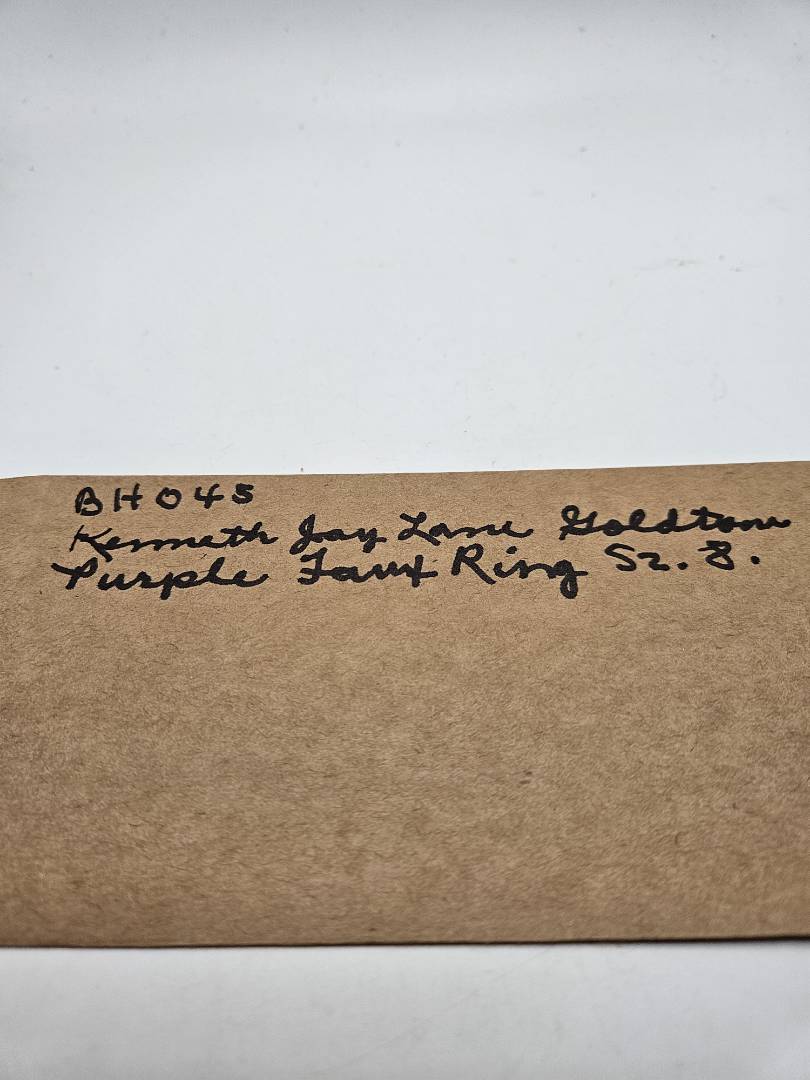 BH045
Kenneth Jay Lane Goldtone
Purple Faux Ring Sz. 8.